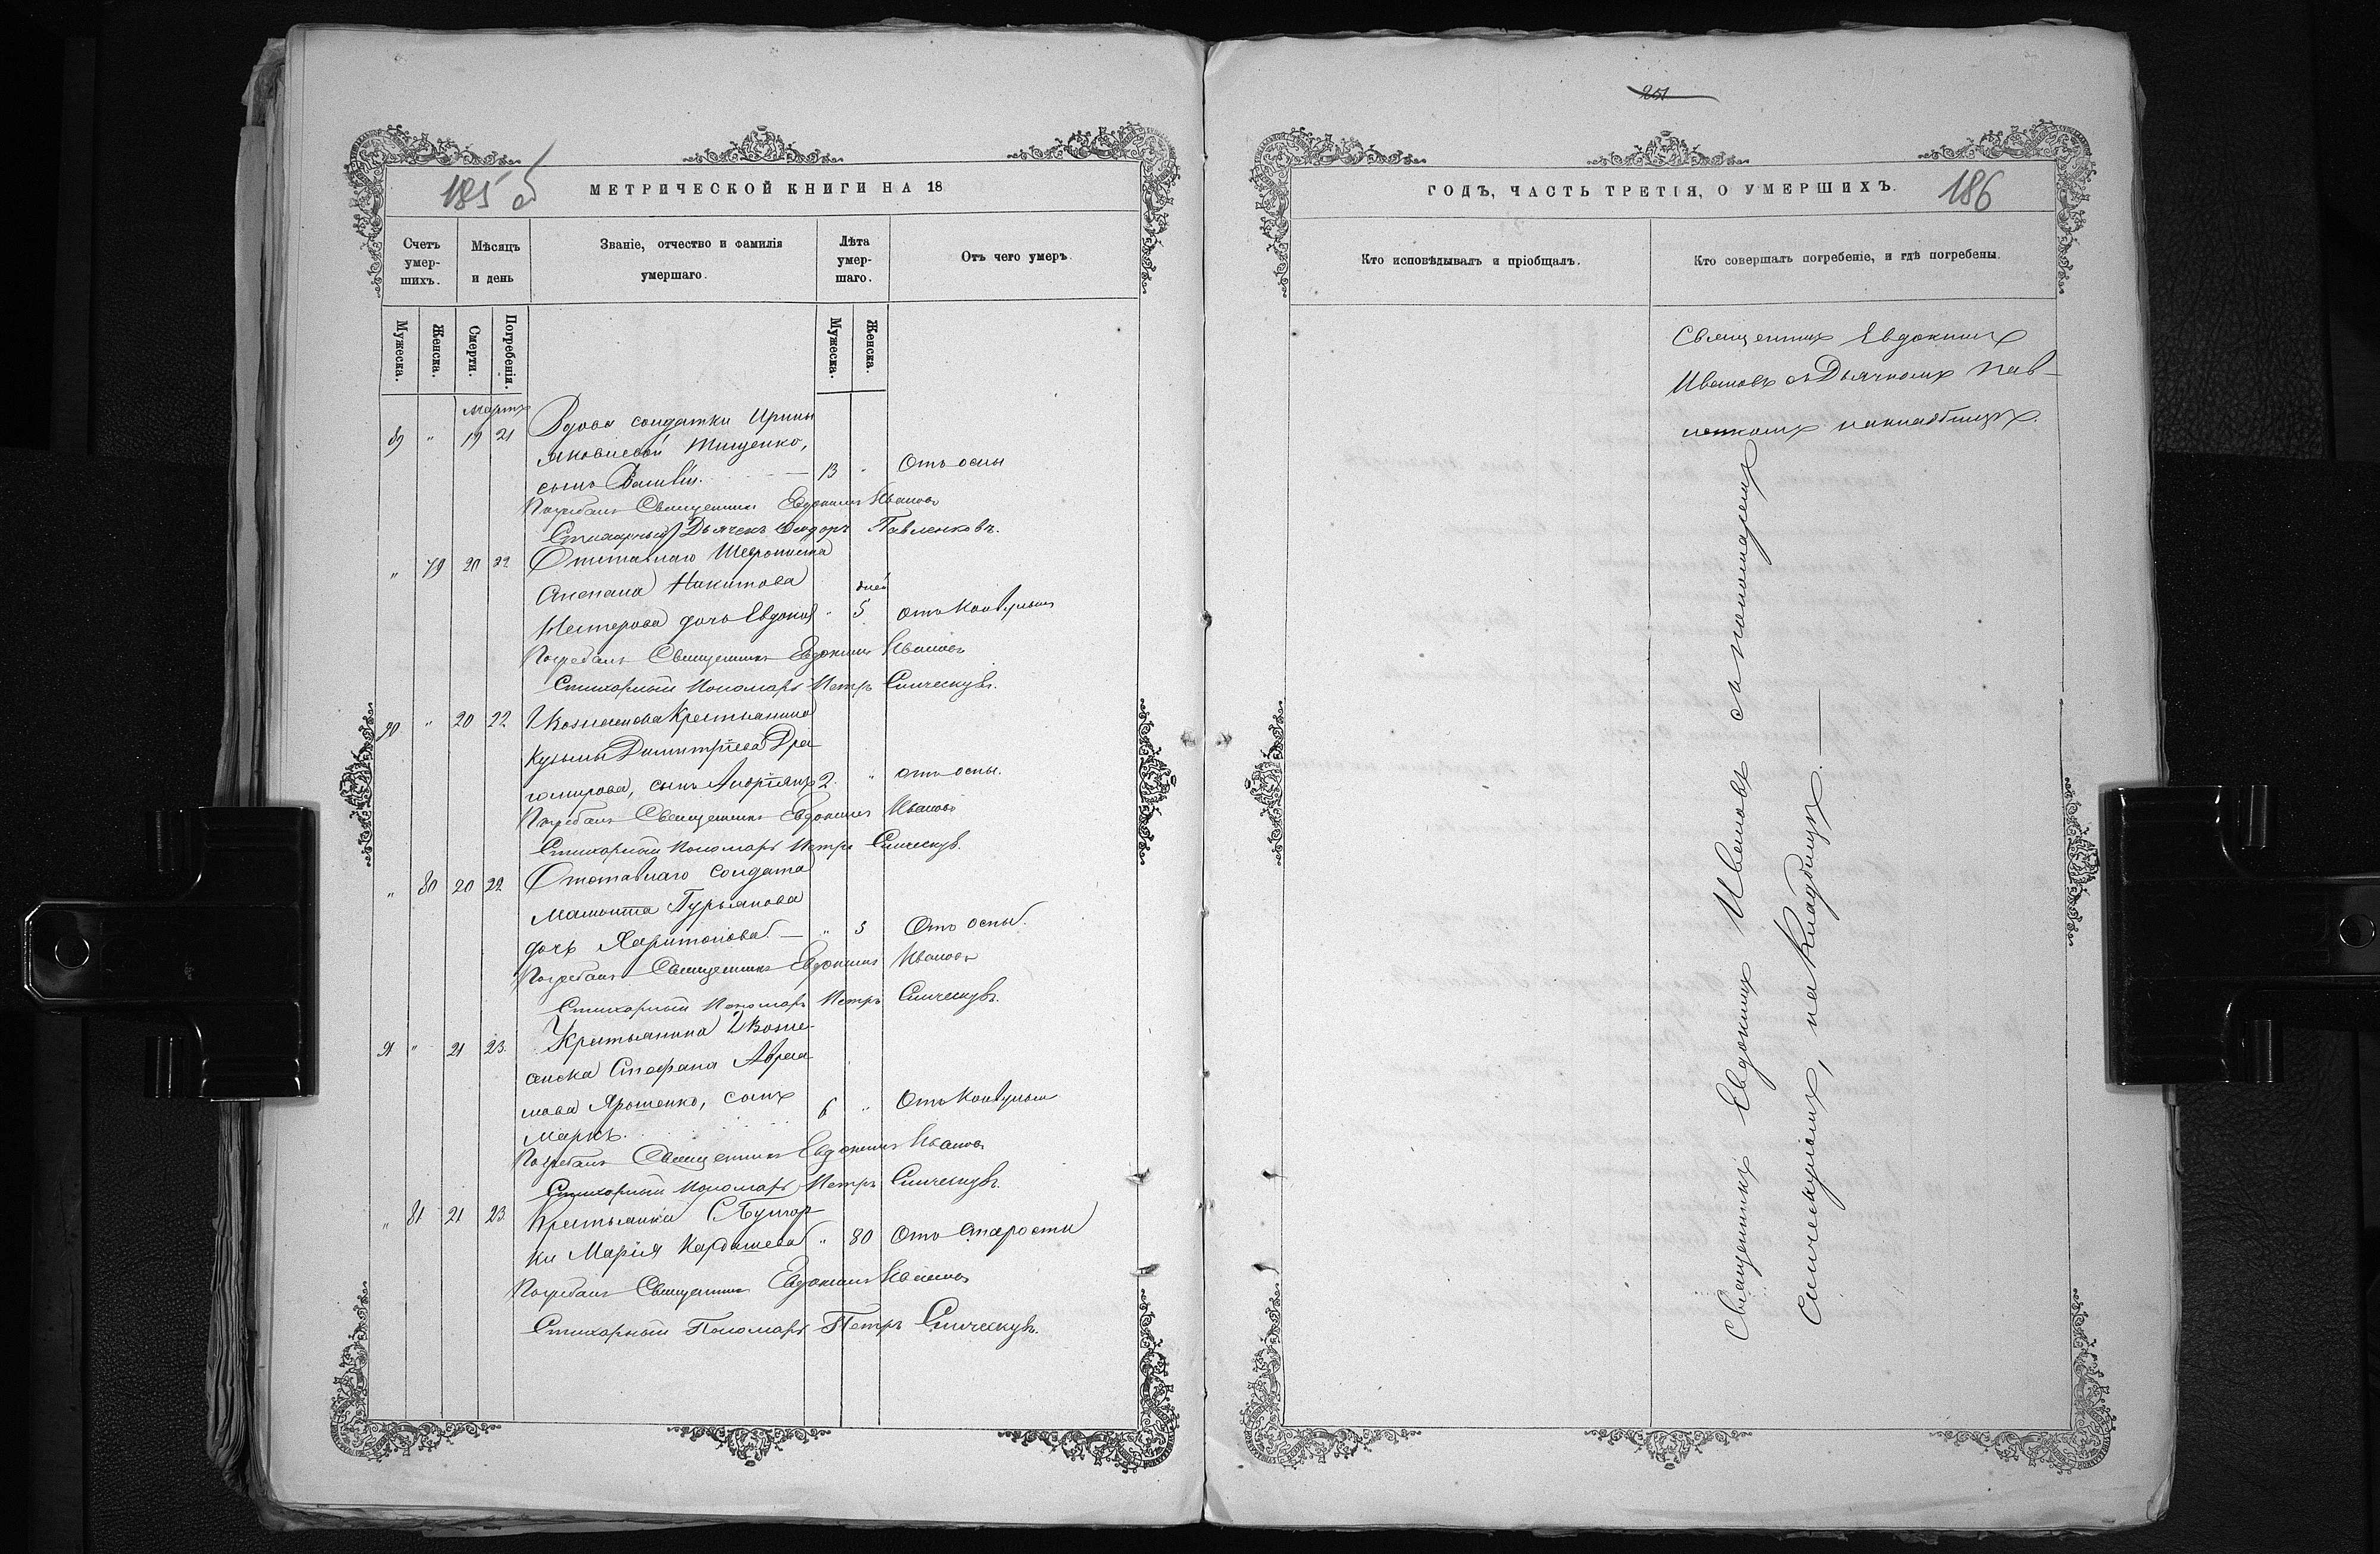 185 об
МЕТРИЧЕСКОЙ КНИГИ НА 18
Счетъ умер-шихъ.
Мѣсяцъ и день
Званіе, отчество и фамилія умершаго.
Лѣта умер-шаго.
Отъ чего умеръ.
Мужеска.
Женска.
Смерти.
Погребенія.
Мужеска.
Женска.
Мартъ
89 " 19 21 Вдова солдатки Ирины
Яковлевой Тищенко,
сынъ 13 " Отъ оспы
Погребалъ Священникъ Евдокимъ Ивановъ
Стихарный Дьячекъ Павленковъ.
" 79 20 22 Отставнаго
Степана Никитова дней
Нестерова дочь Евдокія " 5 отъ конвульсіи
Погребалъ Священникъ Евдокимъ Ивановъ
Стихарный Пономарь Петръ
90 " 20 22 Крестьянина
Кузьмы Димитріева Дра-
гомирова, сынъ Андріянъ 2 " отъ оспы.
Погребалъ Священникъ Евдокимъ Ивановъ
Стихарный Пономарь Петръ
" 80 20 22 Отставнаго солдата
Мамонта Гурьянова
дочь Харитонова — " 3 Отъ оспы.
Погребалъ Священникъ Евдокимъ Ивановъ
Стихарный Пономарь Петръ
91 " 21 23 Крестьянина Г. Возне-
сенска Стефана Авра-
мова Ярошенко, сынъ 6 " Отъ конвульсіи
Маркъ.
Погребалъ Священникъ Евдокимъ Ивановъ
Стихарный Пономарь Петръ
" 81 21 23 Крестьянка
ки Марія Кардашева " 80 Отъ старости
Погребалъ Священникъ Евдокимъ Ивановъ
Стихарный Пономарь Петръ
251
ГОДЪ, ЧАСТЬ ТРЕТІЯ, О УМЕРШИХЪ.
186
Кто исповѣдывалъ и пріобщалъ.
Кто совершалъ погребеніе, и гдѣ погребены.
Священникъ Евдокимъ
Ивановъ съ Дьячкомъ Пав-
ленкомъ на кладбищѣ.
Священникъ Евдокимъ Ивановъ съ пономаремъ
на кладбищѣ. —